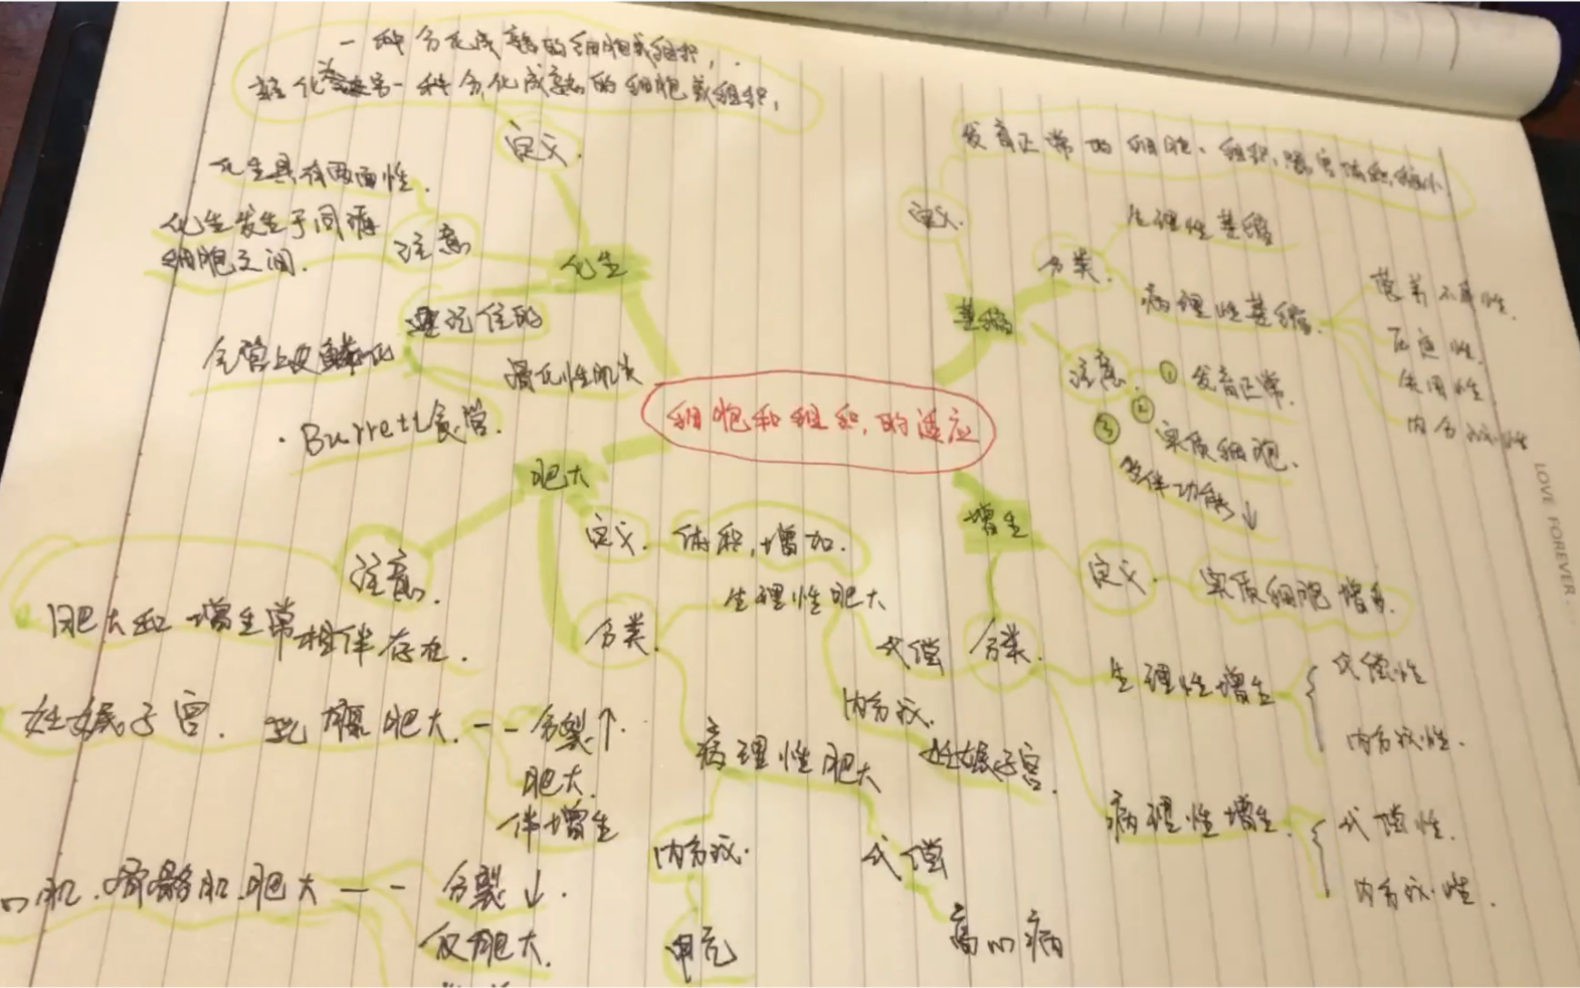 细胞和组织的适应
一种分化成熟的细胞或组织，
转化为另一种分化成熟的细胞或组织，
定义.
化生
注意
化生具有两面性.
化生发生于同源
细胞之间.
要记住的
气管上皮鳞化
骨化性肌炎
·Burrett食管.
萎缩
定义.
发育正常的细胞、组织，器官体积，缩小
分类.
生理性萎缩
病理性萎缩.
营养不良性.
压迫性.
失用性.
内分泌性
注意.
① 发育正常.
② 实质细胞.
③ 伴功能↓
LOVE FOREVER.
肥大
定义. 体积，增加.
分类.
生理性肥大
代偿
内分泌.
妊娠子宫.
病理性肥大
内分泌.
甲亢
代偿
高心病
注意.
肥大和增生常相伴存在.
妊娠子宫. 乳腺肥大. -- 分裂↑.
肥大.
伴增生
心肌.骨骼肌.肥大 -- 分裂↓.
仅肥大.
增生
定义. 实质细胞增多.
分类.
生理性增生
代偿性
内分泌性.
病理性增生.
代偿性.
内分泌性.